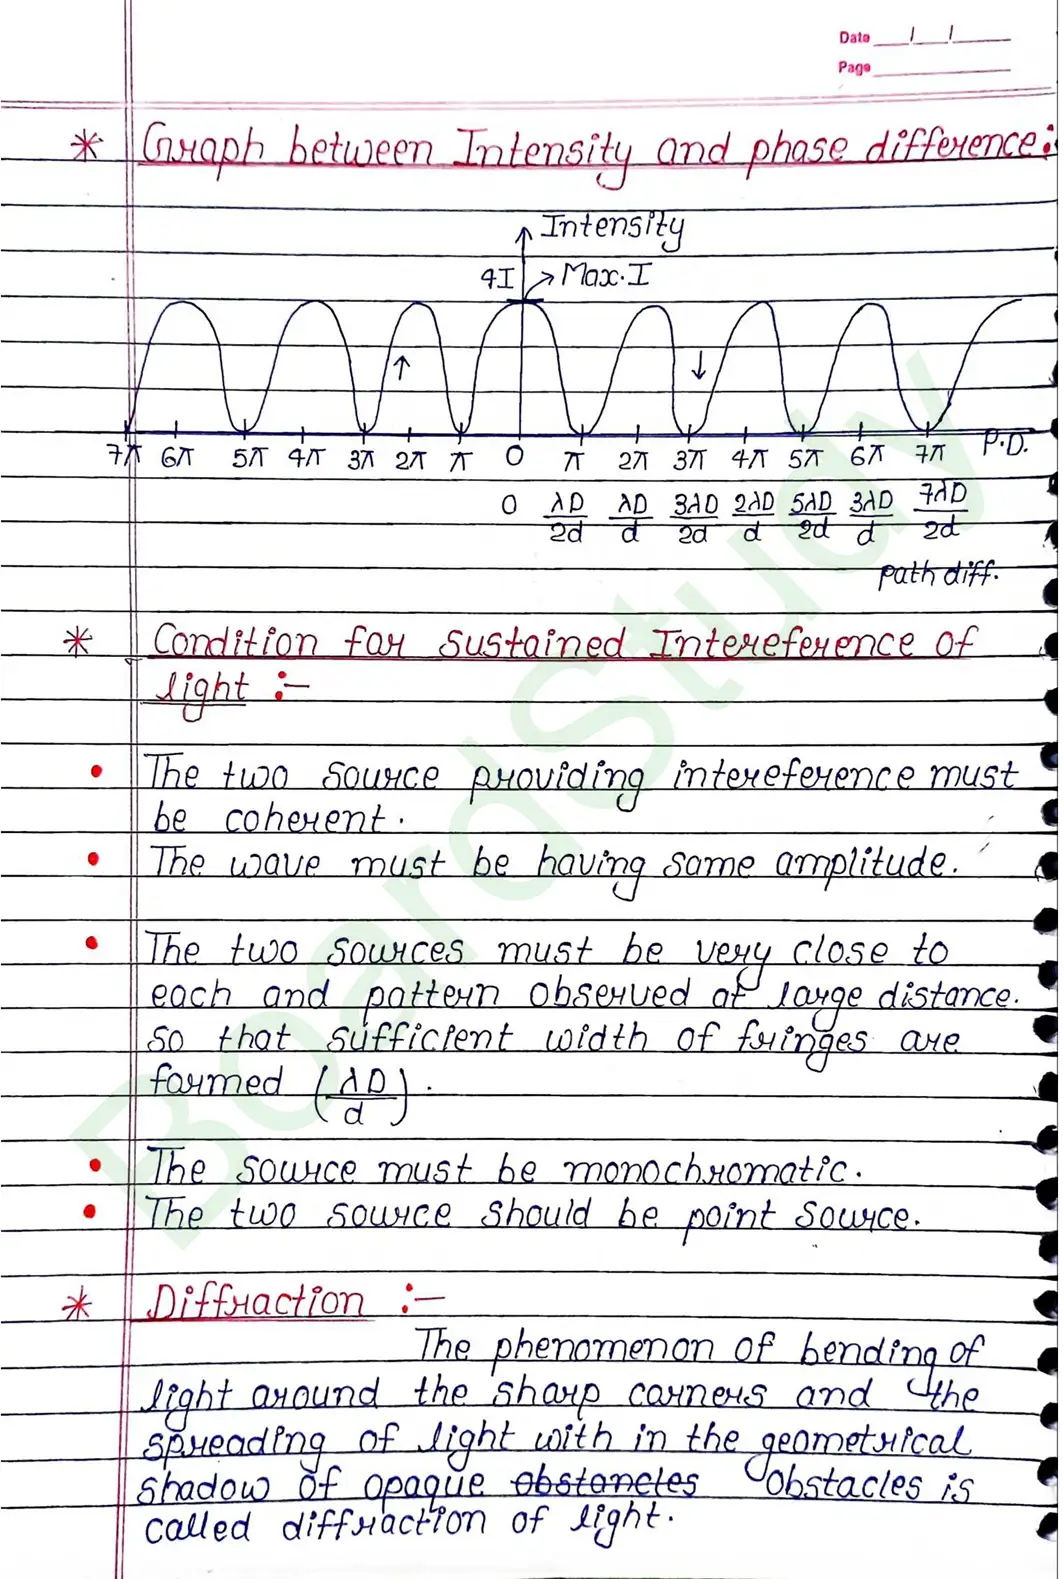 Date / /
Page
* Graph between Intensity and phase difference:
Intensity
4I → Max. I
7π 6π 5π 4π 3π 2π π 0 π 2π 3π 4π 5π 6π 7π P.D.
0 λD/2d λD/d 3λD/2d 2λD/d 5λD/2d 3λD/d 7λD/2d
path diff.
* Condition for sustained Intereference of
light :-
• The two source providing intereference must
be coherent.
• The wave must be having same amplitude.
• The two sources must be very close to
each and pattern observed at large distance.
so that sufficient width of fringes are
formed (λD/d).
• The source must be monochromatic.
• The two source should be point source.
* Diffraction :-
The phenomenon of bending of
light around the sharp corners and the
spreading of light with in the geometrical
shadow of opaque obstancles obstacles is
called diffraction of light.
BoardStudy